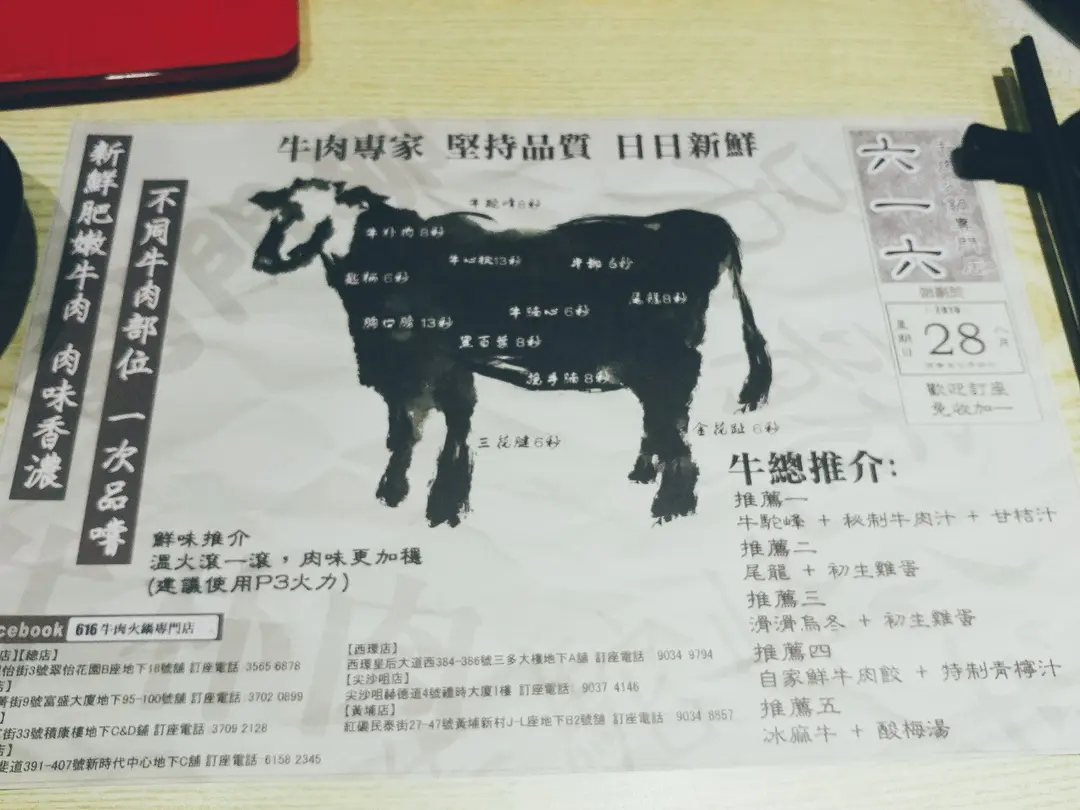 牛肉專家 堅持品質 日日新鮮
新鮮肥嫩牛肉 肉味香濃
不同牛肉部位 一次品嚐
六一六
專門店
28
星期日
八月
歡迎訂座
免收加一
牛駝峰8秒
牛外肉8秒
牛心梘13秒
牛柳6秒
匙柄6秒
尾龍8秒
牛腸心6秒
胸口膽13秒
黑百葉8秒
挽手腩8秒
三花腱6秒
金花趾6秒
鮮味推介
溫火滾一滾,肉味更加穩
(建議使用P3火力)
牛總推介:
推薦一
牛駝峰 + 秘制牛肉汁 + 甘桔汁
推薦二
尾龍 + 初生雞蛋
推薦三
滑滑烏冬 + 初生雞蛋
推薦四
自家鮮牛肉餃 + 特制青檸汁
推薦五
冰麻牛 + 酸梅湯
cebook 616牛肉火鍋專門店
店】【總店】
怡街3號翠怡花園B座地下18號舖 訂座電話 3565 6878
店】
街9號富盛大廈地下95-100號舖 訂座電話 3702 0899
】
街33號積康樓地下C&D舖 訂座電話 3709 2128
店】
道391-407號新時代中心地下C舖 訂座電話 6158 2345
【西環店】
西環皇后大道西384-386號三多大樓地下A舖 訂座電話 9034 9794
【尖沙咀店】
尖沙咀赫德道4號禮時大廈1樓 訂座電話 9037 4146
【黃埔店】
紅磡民泰街27-47號黃埔新村J-L座地下B2號舖 訂座電話 9034 8857